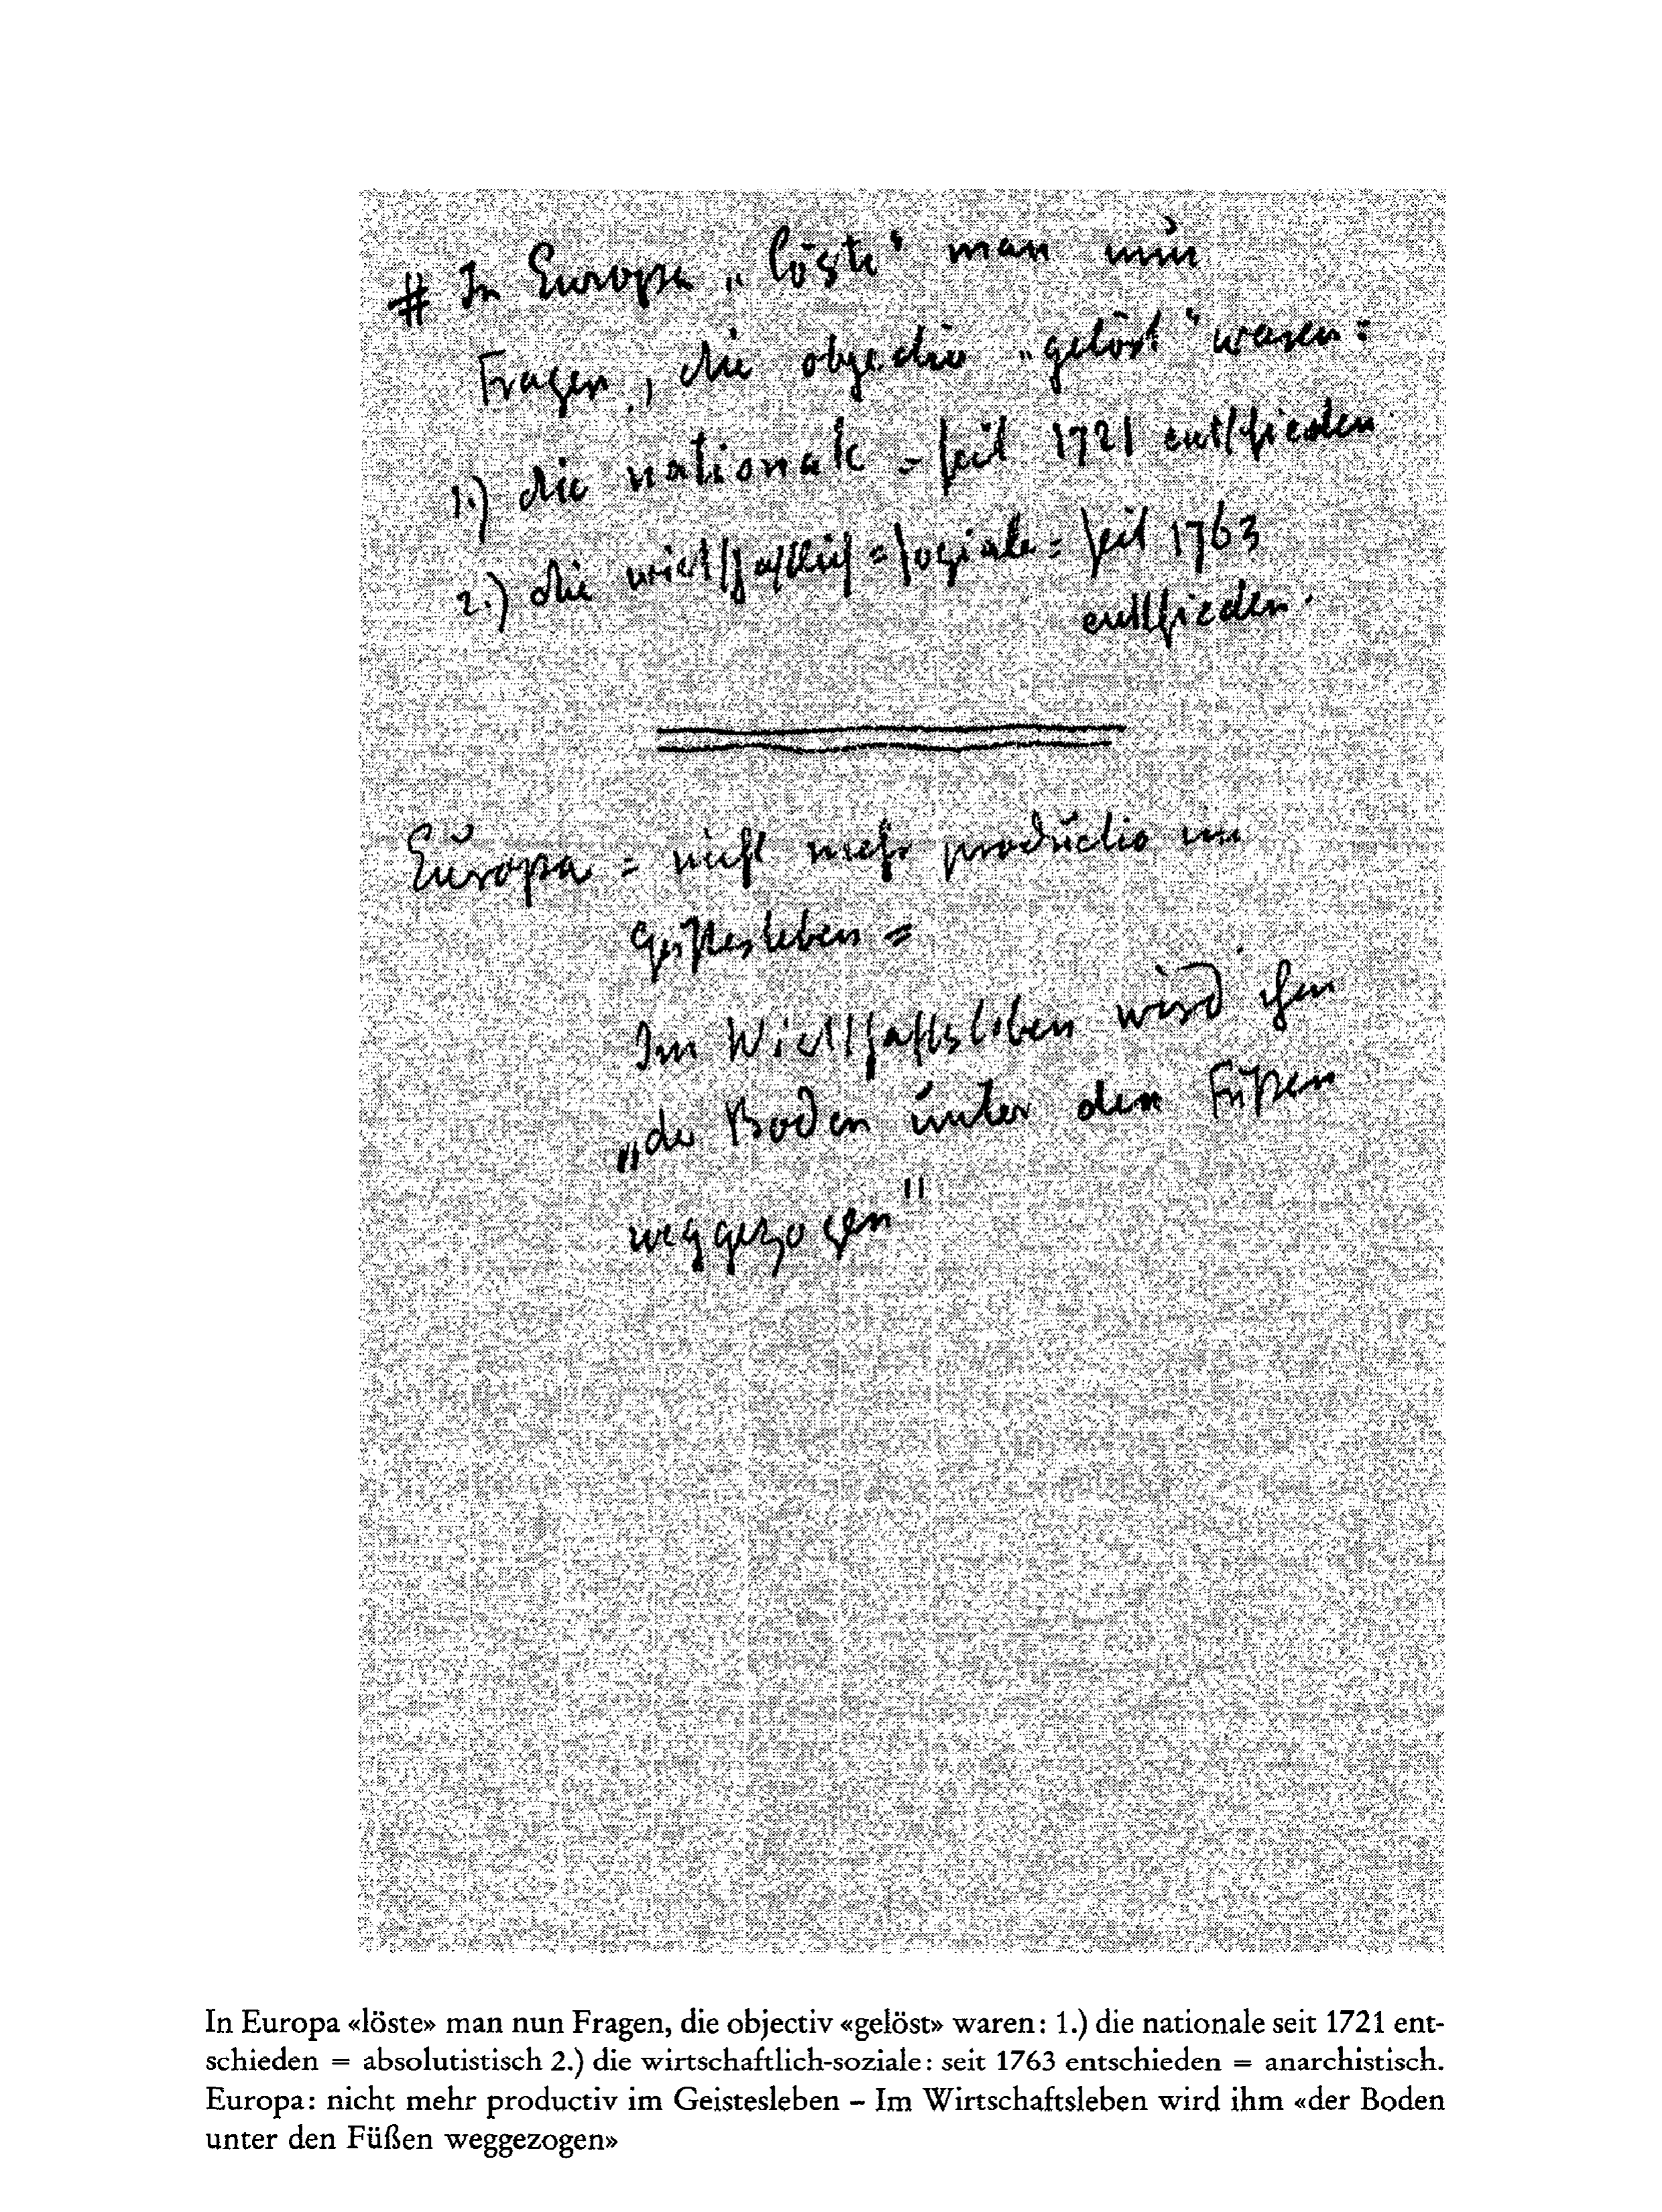 # In Europa „löste" man nun
Fragen, die objectiv „gelöst" waren:
1.) die nationale - seit 1721 entschieden
2.) die wirtschaftlich=soziale: seit 1763
entschieden.
Europa: nicht mehr productiv im
Geistesleben =
Im Wirtschaftsleben wird ihm
„der Boden unter den Füßen
weggezogen"
In Europa «löste» man nun Fragen, die objectiv «gelöst» waren: 1.) die nationale seit 1721 ent-
schieden = absolutistisch 2.) die wirtschaftlich-soziale: seit 1763 entschieden = anarchistisch.
Europa: nicht mehr productiv im Geistesleben – Im Wirtschaftsleben wird ihm «der Boden
unter den Füßen weggezogen»